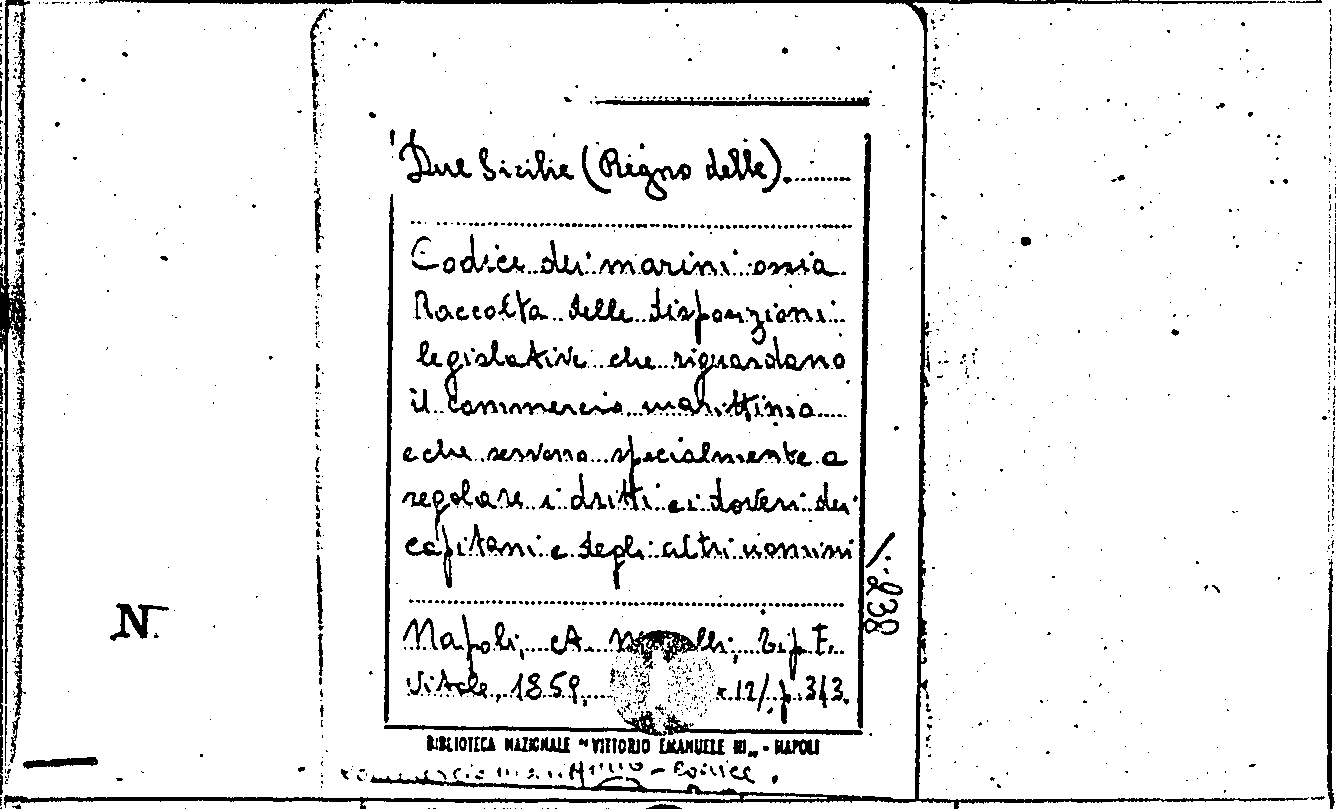 Due Sicilie (Regno delle).
Codice dei marini ossia
Raccolta delle disposizioni
legislative che riguardano
il commercio marittimo
e che servono specialmente a
regolare i dritti e i doveri dei
capitani e degli altri uomini
238
N.
Napoli, A. Tip. F.
Vitale, 1859, 12/ p. 313.
BIBLIOTECA NAZIONALE "VITTORIO EMANUELE III" - NAPOLI
Commercio marittimo - Codice.